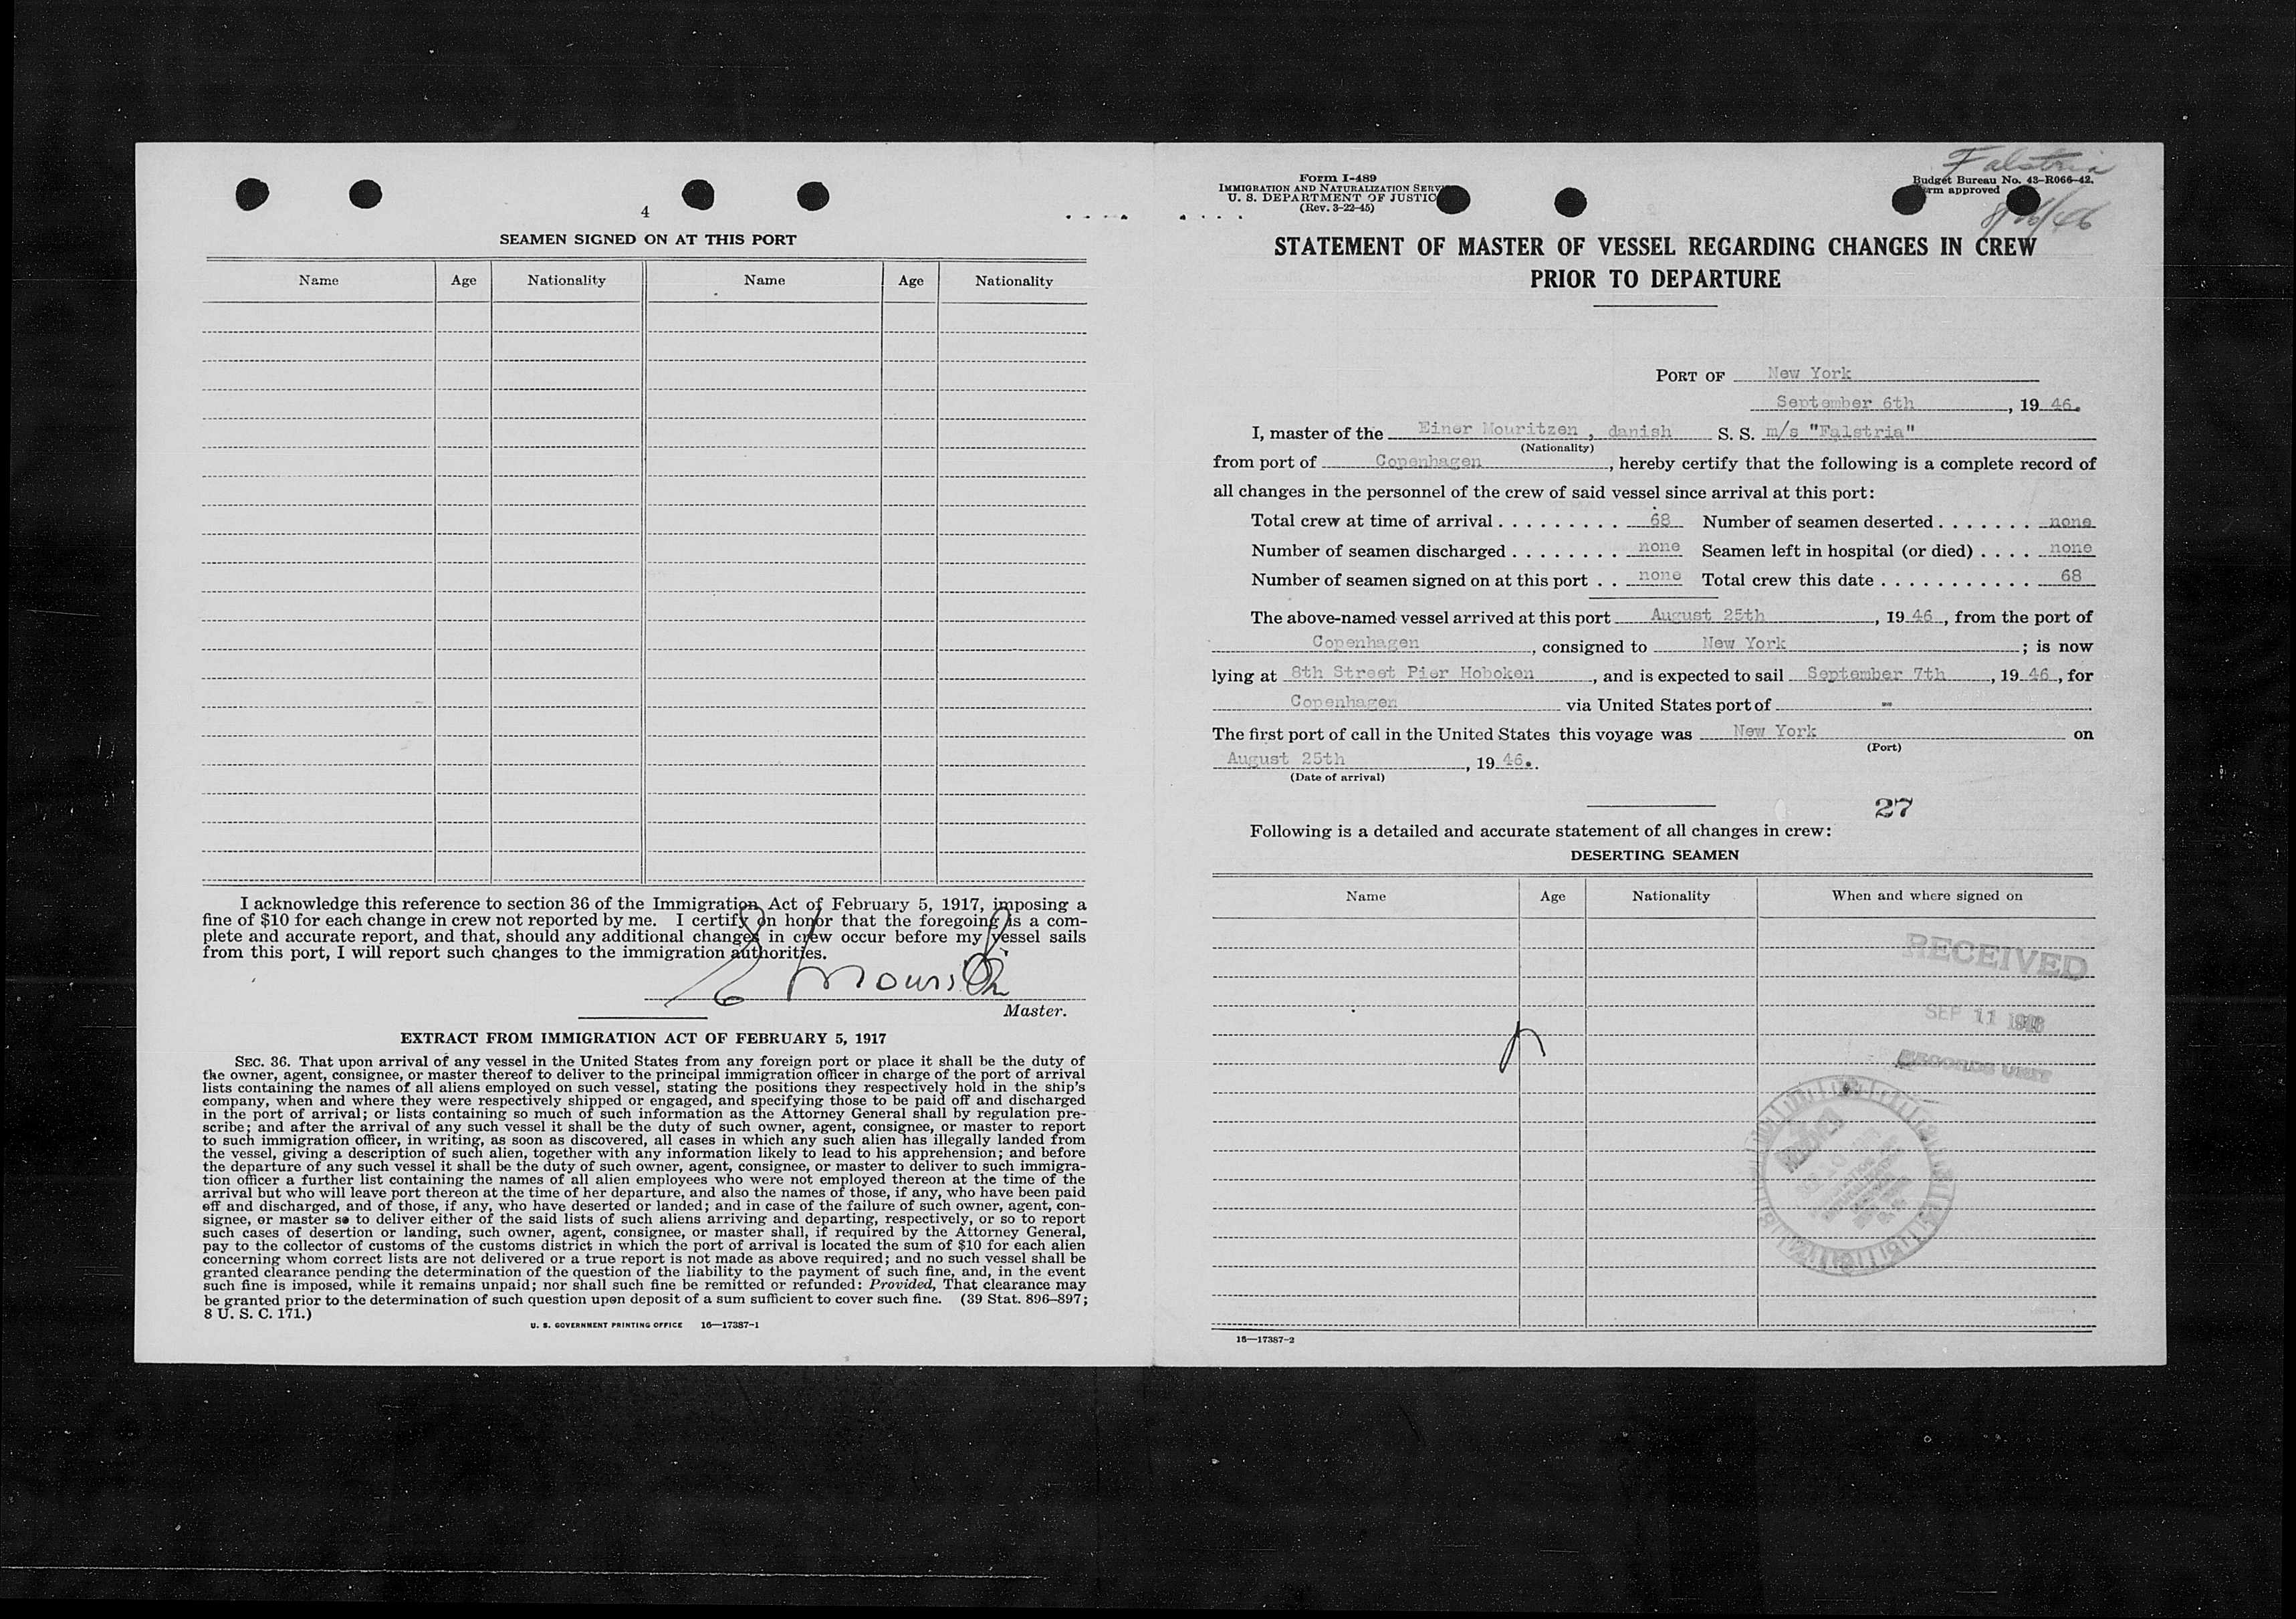 4
SEAMEN SIGNED ON AT THIS PORT
Name Age Nationality Name Age Nationality
I acknowledge this reference to section 36 of the Immigration Act of February 5, 1917, imposing a
fine of $10 for each change in crew not reported by me. I certify on honor that the foregoing is a com-
plete and accurate report, and that, should any additional changes in crew occur before my vessel sails
from this port, I will report such changes to the immigration authorities.
Master.
EXTRACT FROM IMMIGRATION ACT OF FEBRUARY 5, 1917
SEC. 36. That upon arrival of any vessel in the United States from any foreign port or place it shall be the duty of
the owner, agent, consignee, or master thereof to deliver to the principal immigration officer in charge of the port of arrival
lists containing the names of all aliens employed on such vessel, stating the positions they respectively hold in the ship's
company, when and where they were respectively shipped or engaged, and specifying those to be paid off and discharged
in the port of arrival; or lists containing so much of such information as the Attorney General shall by regulation pre-
scribe; and after the arrival of any such vessel it shall be the duty of such owner, agent, consignee, or master to report
to such immigration officer, in writing, as soon as discovered, all cases in which any such alien has illegally landed from
the vessel, giving a description of such alien, together with any information likely to lead to his apprehension; and before
the departure of any such vessel it shall be the duty of such owner, agent, consignee, or master to deliver to such immigra-
tion officer a further list containing the names of all alien employees who were not employed thereon at the time of the
arrival but who will leave port thereon at the time of her departure, and also the names of those, if any, who have been paid
off and discharged, and of those, if any, who have deserted or landed; and in case of the failure of such owner, agent, con-
signee, or master so to deliver either of the said lists of such aliens arriving and departing, respectively, or so to report
such cases of desertion or landing, such owner, agent, consignee, or master shall, if required by the Attorney General,
pay to the collector of customs of the customs district in which the port of arrival is located the sum of $10 for each alien
concerning whom correct lists are not delivered or a true report is not made as above required; and no such vessel shall be
granted clearance pending the determination of the question of the liability to the payment of such fine, and, in the event
such fine is imposed, while it remains unpaid; nor shall such fine be remitted or refunded: Provided, That clearance may
be granted prior to the determination of such question upon deposit of a sum sufficient to cover such fine. (39 Stat. 896–897;
8 U. S. C. 171.)
U. S. GOVERNMENT PRINTING OFFICE 16—17387-1
Form I-489
IMMIGRATION AND NATURALIZATION SERV
U. S. DEPARTMENT OF JUSTIC
(Rev. 3-22-45)
Falstria
Budget Bureau No. 43-R066-42.
rm approved
STATEMENT OF MASTER OF VESSEL REGARDING CHANGES IN CREW
PRIOR TO DEPARTURE
PORT OF New York
September 6th, 19 46.
I, master of the Einer Mouritzen, danish S. S. m/s "Falstria"
(Nationality)
from port of Copenhagen, hereby certify that the following is a complete record of
all changes in the personnel of the crew of said vessel since arrival at this port:
Total crew at time of arrival . . . . . . . . . 68 Number of seamen deserted . . . . . . . none
Number of seamen discharged . . . . . . . . none Seamen left in hospital (or died) . . . . none
Number of seamen signed on at this port . . none Total crew this date . . . . . . . . . . . 68
The above-named vessel arrived at this port August 25th, 19 46, from the port of
Copenhagen, consigned to New York; is now
lying at 8th Street Pier Hoboken, and is expected to sail September 7th, 19 46, for
Copenhagen via United States port of -
The first port of call in the United States this voyage was New York on
(Port)
August 25th, 19 46.
(Date of arrival)
27
Following is a detailed and accurate statement of all changes in crew:
DESERTING SEAMEN
Name Age Nationality When and where signed on
RECEIVED
SEP 11
RECORDS UNIT
16—17387-2